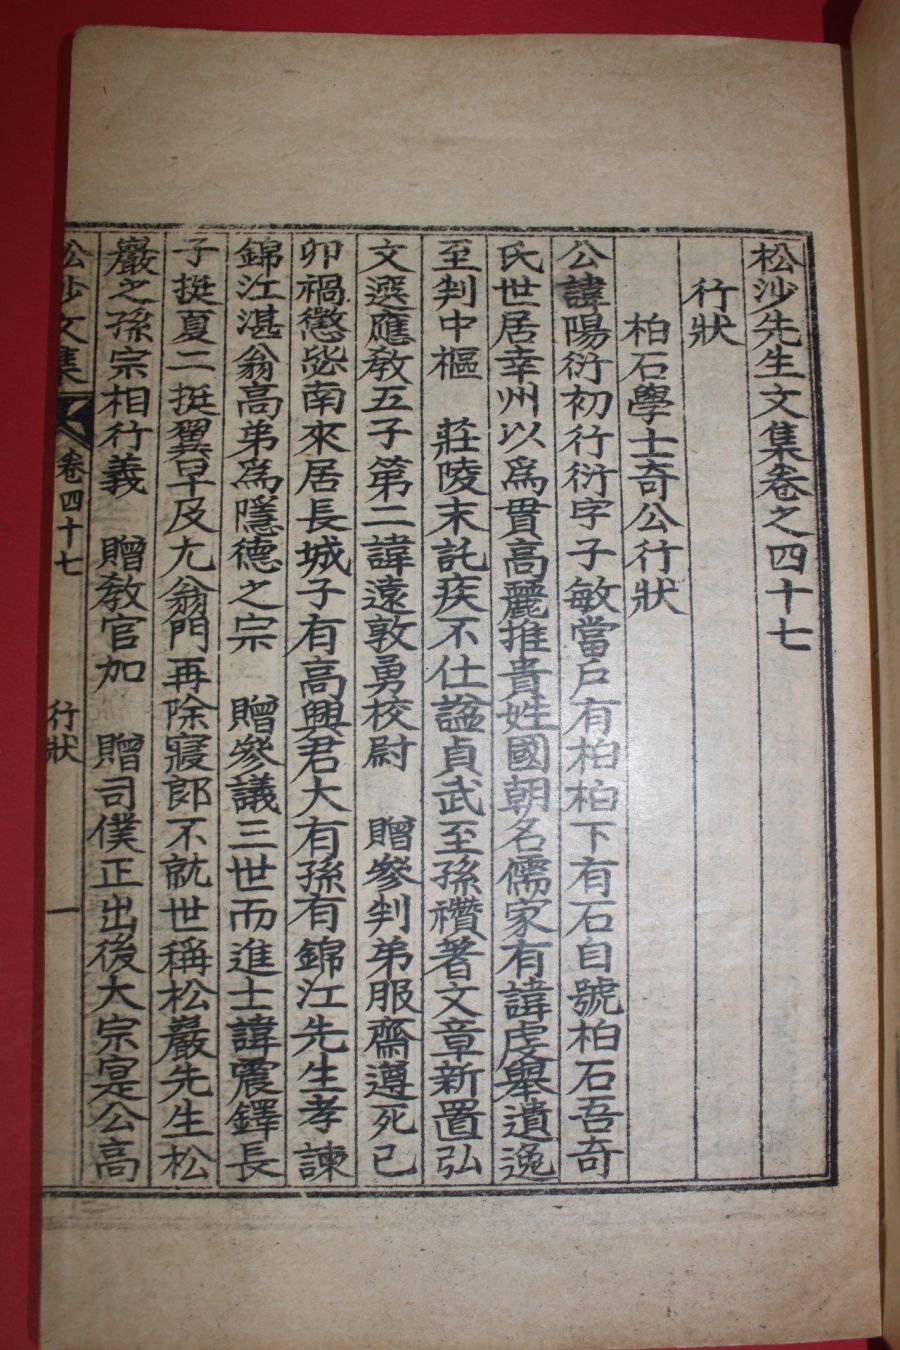 松沙先生文集卷之四十七
行狀
柏石學士奇公行狀
公諱陽衍初行衍字子敏當戶有柏柏下有石自號柏石吾奇
氏世居幸州以爲貫高麗推貴姓國朝名儒家有諱虔擧遺逸
至判中樞 莊陵末託疾不仕諡貞武至孫禶著文章新置弘
文選應敎五子第二諱遠敦勇校尉 贈參判弟服齋遵死己
卯禍懲毖南來居長城子有高興君大有孫有錦江先生孝諫
錦江湛翁高弟爲隱德之宗 贈參議三世而進士諱震鐸長
子挺夏二挺翼早及尢翁門再除寢郞不就世稱松巖先生松
巖之孫宗相行義 贈敎官加 贈司僕正出後大宗寔公高
松沙文集 卷四十七 行狀 一